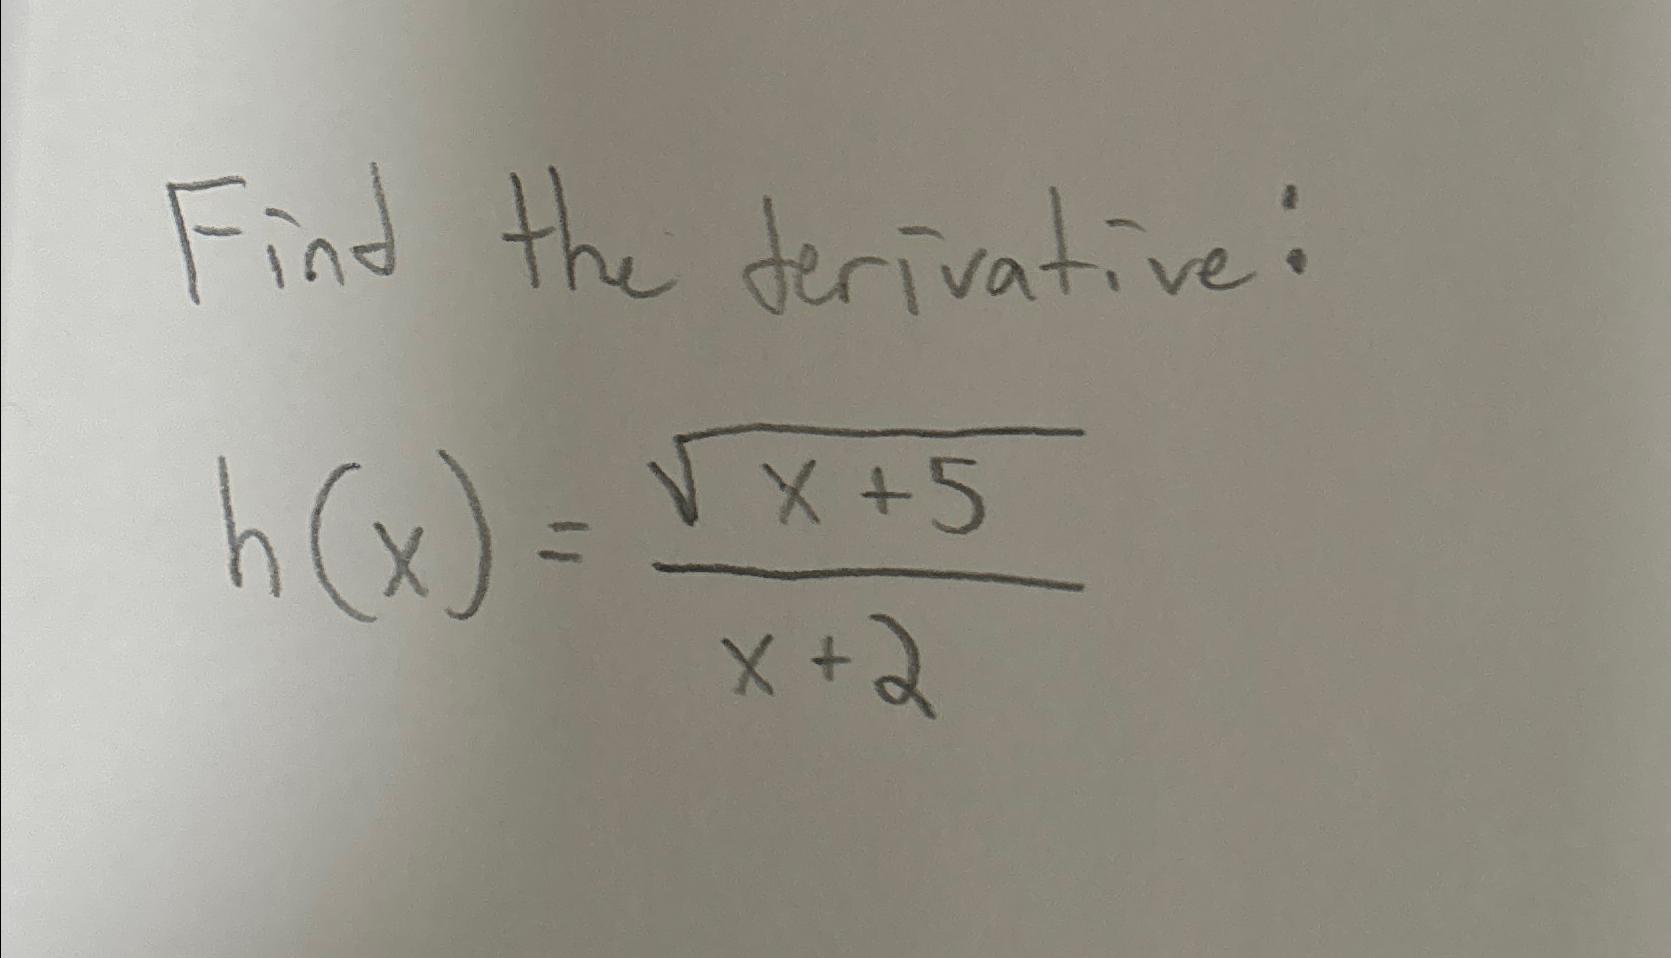 Find the derivative:
h(x) = √x+5
x+2